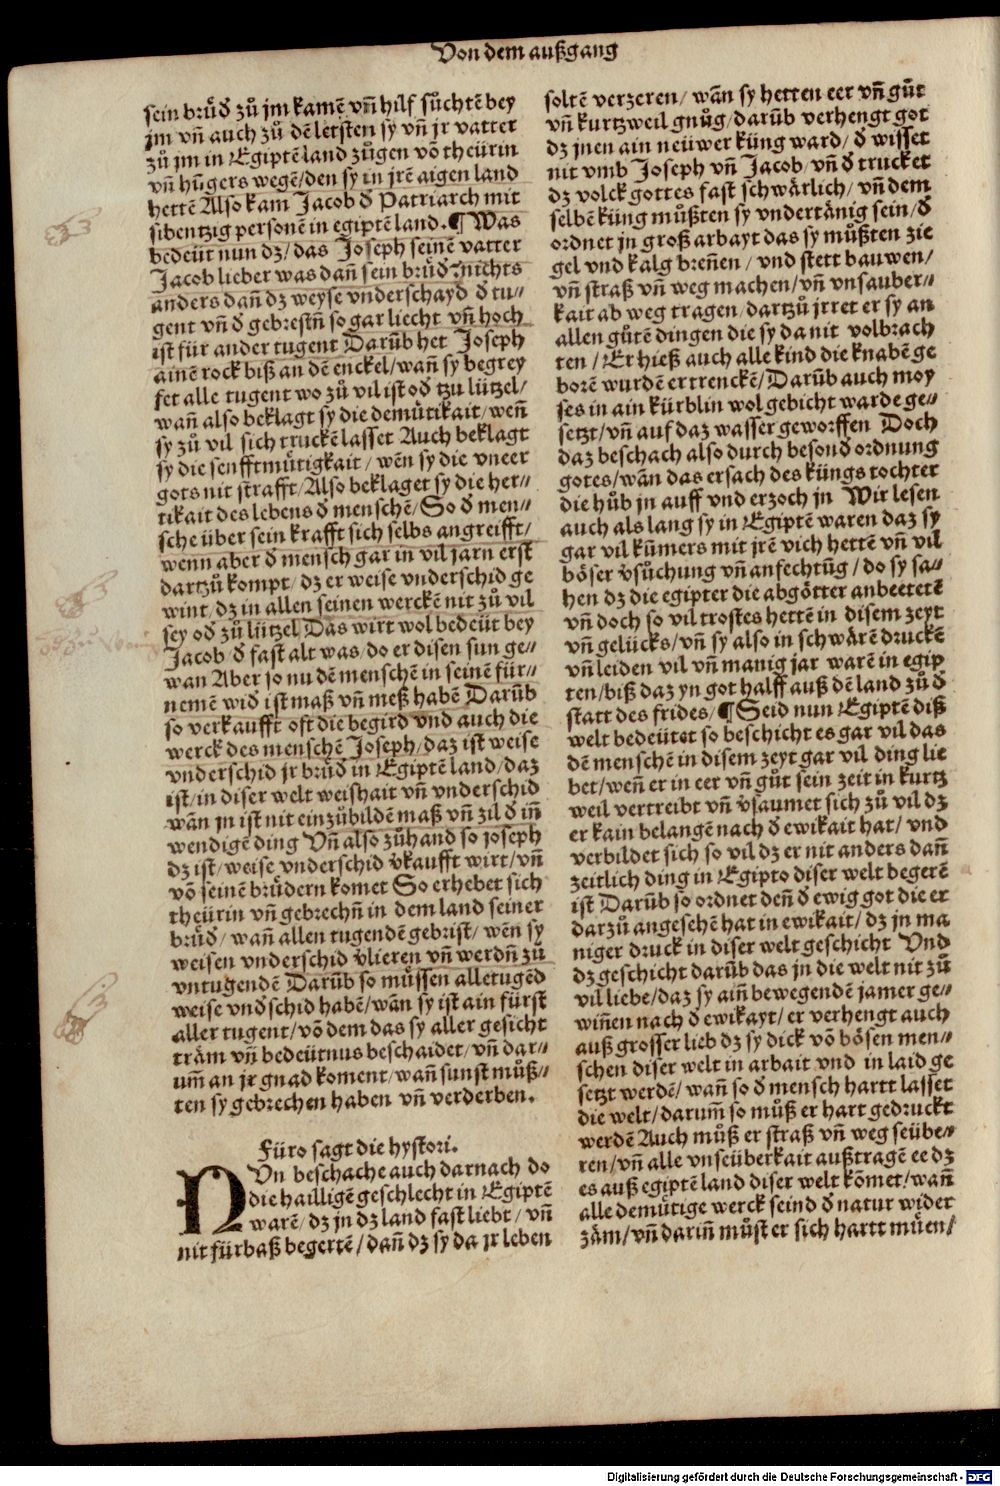 Von dem außgang
sein brůd̕ zů jm kamē vñ hilf sůchtē bey
jm vñ auch zů dē letsten sy vñ jr vatter
zů jm in Egiptē land zůgen vō theürin
vñ hūgers wegē/den sy in jrē aigen land
hettē Also kam Jacob d̕ Patriarch mit
sibentzig personē in egiptē land. ¶ Was
bedeüt nun dz/das Joseph seinē vatter
Jacob lieber was dañ sein brůd̕ nichts
anders dañ dz weyse vnderschayd d̕ tu⸗
gent vñ d̕ gebrestñ so gar liecht vñ hoch
ist für ander tugent Darūb het Joseph
ainē rock biß an dē enckel/wañ sy begrey
fet alle tugent wo zů vil ist od̕ tzu lützel/
wañ also beklagt sy die demůtikait/weñ
sy zů vil sich truckē lasset Auch beklagt
sy die senfftmůtigkait/wēn sy die vneer
gots nit strafft/Also beklaget sy die her⸗
tikait des lebens d̕ menschē/So d̕ men⸗
sche über sein krafft sich selbs angreifft/
wenn aber d̕ mensch gar in vil jarn erst
dartzů kompt/dz er weise vnderschid ge
wint/dz in allen seinen werckē nit zů vil
sey od̕ zů lützel Das wirt wol bedeüt bey
Jacob d̕ fast alt was/do er disen sun ge⸗
wan Aber so nu dē menschē in seinē für⸗
nemē wid̕ ist maß vñ meß habē Darūb
so verkaufft oft die begird vnd auch die
werck des menschē Joseph/daz ist weise
vnderschid jr brůd̕ in Egiptē land/daz
ist/in diser welt weishait vñ vnderschid
wān jn ist nit einzůbildē maß vñ zil d̕ iñ
wendigē ding Vñ also zůhand so joseph
dz ist/weise vnderschid v̕kaufft wirt/vñ
vō seinē brüdern komet So erhebet sich
theürin vñ gebrechñ in dem land seiner
brůd̕/wañ allen tugendē gebrist/wēn sy
weisen vnderschid v̕lieren vñ werdñ zů
vntugendē Darūb so můssen alle tugēd
weise vnd̕schid habē/wān sy ist ain fürst
aller tugent/vō dem das sy aller gesicht
träm vñ bedeütnus beschaidet/vñ dar⸗
um̄ an jr gnad koment/wañ sunst můß⸗
ten sy gebrechen haben vñ verderben.
Füro sagt die hystori.
NVn beschache auch darnach do
die hailligē geschlecht in Egiptē
warē/dz jn dz land fast liebt/vñ
nit fürbaß begertē/dañ dz sy da jr leben
soltē verzeren/wān sy hetten eer vñ gůt
vñ kurtzweil gnůg/darūb verhengt got
dz jnen ain neüwer küng ward/d̕ wisset
nit vmb Joseph vñ Jacob/vñ d̕ trucket
dz volck gottes fast schwärlich/vñ dem
selbē küng můßten sy vndertänig sein/d̕
ordnet jn groß arbayt das sy můßten zie
gel vnd kalg breñen/vnd stett bauwen/
vñ straß vñ weg machen/vñ vnsauber⸗
kait ab weg tragen/dartzů jrret er sy an
allen gůtē dingen die sy da nit volbrach
ten/Er hieß auch alle kind die knabē ge
borē wurdē ertrenckē/Darūb auch moy
ses in ain kürblin wol gebicht warde ge⸗
setzt/vñ auf daz wasser geworffen Doch
daz beschach also durch besond̕ ordnung
gotes/wān das ersach des küngs tochter
die hůb jn auff vnd erzoch jn Wir lesen
auch als lang sy in Egiptē waren daz sy
gar vil kūmers mit jrē vich hettē vñ vil
böser v̕sůchung vñ anfechtūg/do sy sa⸗
hen dz die egipter die abgötter anbeetetē
vñ doch so vil trostes hettē in disem zeyt
vñ gelücks/vñ sy also in schwärē druckē
vñ leiden vil vñ manig jar warē in egip
ten/biß daz yn got halff auß dē land zů d̕
statt des frides/¶ Seid nun Egiptē diß
welt bedeütet so beschicht es gar vil das
dē menschē in disem zeyt gar vil ding lie
bet/weñ er in eer vñ gůt sein zeit in kurtz
weil vertreibt vñ v̕saumet sich zů vil dz
er kain belangē nach d̕ ewikait hat/vnd
verbildet sich so vil dz er nit anders dañ
zeitlich ding in Egipto diser welt begerē
ist Darūb so ordnet deñ d̕ ewig got die er
darzů angesehē hat in ewikait/dz jn ma
niger druck in diser welt geschicht Vnd
dz geschicht darūb das jn die welt nit zů
vil liebe/daz sy aiñ bewegendē jamer ge⸗
wiñen nach d̕ ewikayt/er verhengt auch
auß grosser lieb dz sy dick vō bösen men⸗
schen diser welt in arbait vnd in laid ge
setzt werdē/wañ so d̕ mensch hartt lasset
die welt/darum̄ so můß er hart gedruckt
werdē Auch můß er straß vñ weg seübe⸗
ren/vñ alle vnseüberkait außtragē ee dz
es auß egiptē land diser welt kōmet/wañ
alle demütige werck seind d̕ natur wider
zäm/vñ dariñ můst er sich hartt müen/
Digitalisierung gefördert durch die Deutsche Forschungsgemeinschaft - DFG